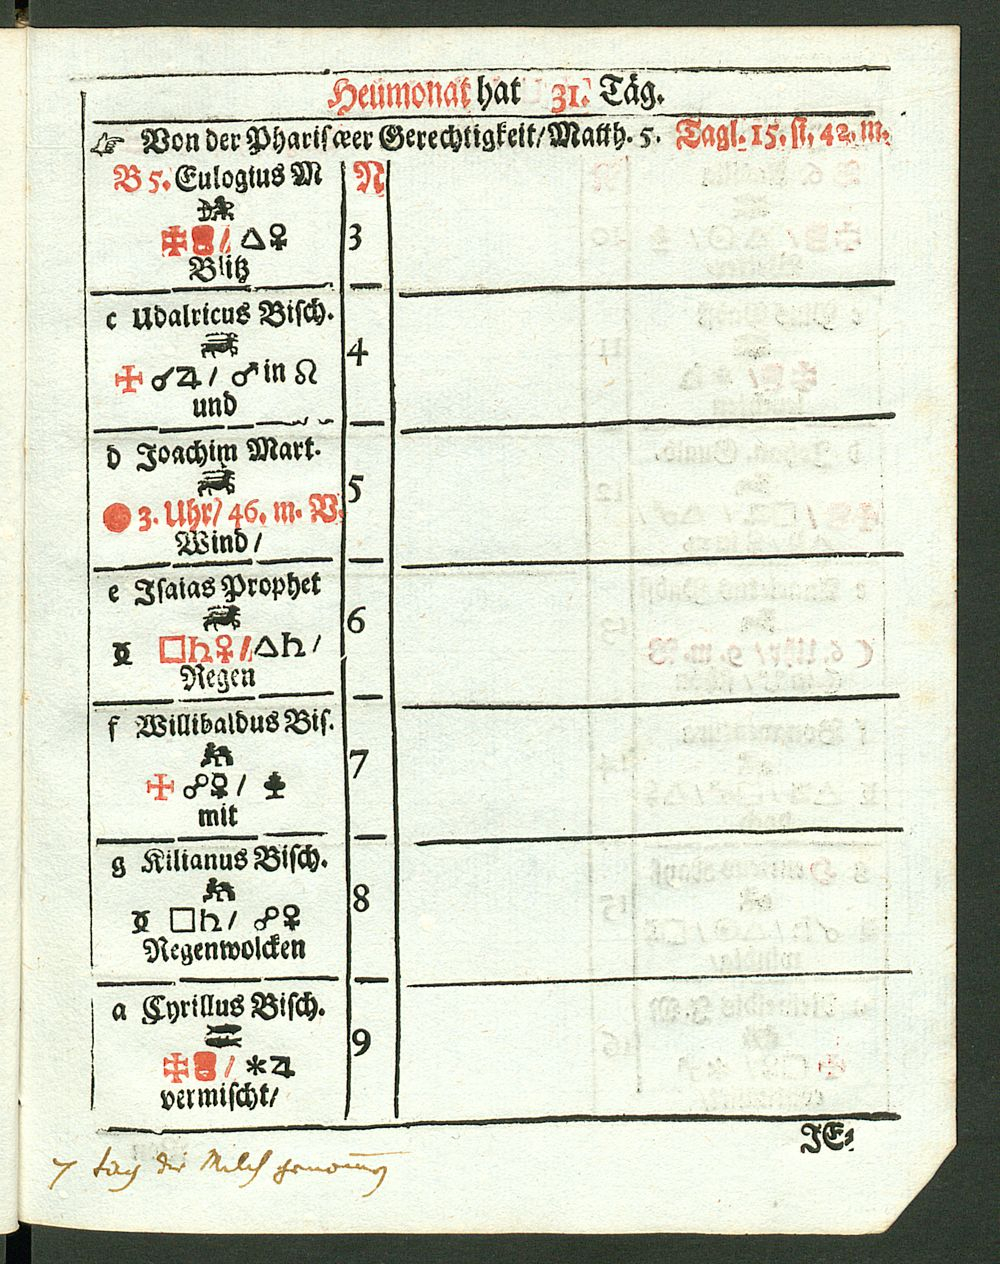 Heumonat hat 31. Täg.
☞ Von der Phariſæer Gerechtigkeit/ Matth. 5. Tagl. 15. ſt. 42. m.
B 5. Eulogius M N
△♀ 3
Blitz
c Udalricus Biſch.
☌♃/ ♂ in ♌ 4
und
d Joachim Mart.
5
3. Uhr/ 46. m. V.
Wind/
e Iſaias Prophet
6
□♄♀/ △♄/
Regen
f Willibaldus Biſ.
☍☿/ 7
mit
g Kilianus Biſch.
8
□♄/ ☍♀
Regenwolcken
a Cyrillus Biſch.
9
/ ⚹♃
vermiſcht/
JE⸗
7 tag die Milch genomen